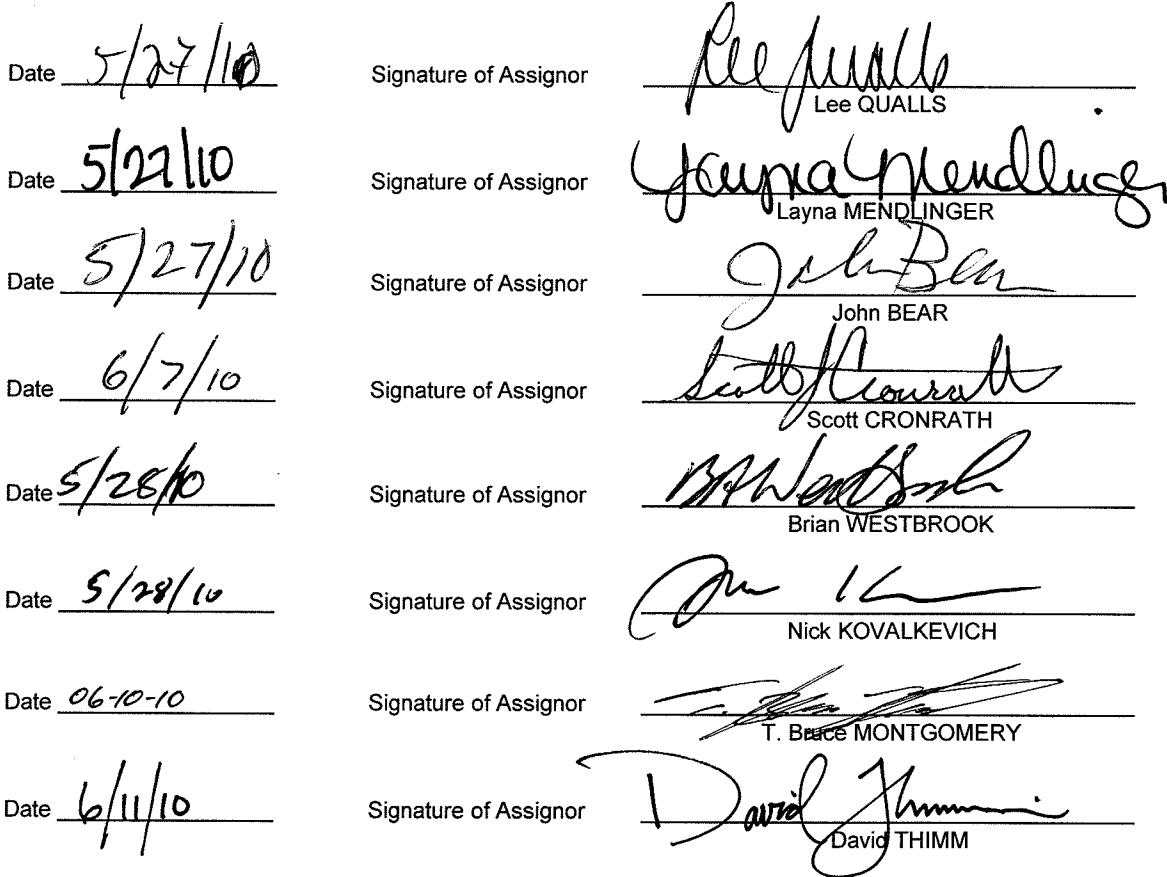 Date 5/27/10 Signature of Assignor Lee Qualls
Lee QUALLS
Date 5/27/10 Signature of Assignor Layna Mendlinger
Layna MENDLINGER
Date 5/27/10 Signature of Assignor John Bear
John BEAR
Date 6/7/10 Signature of Assignor Scott J Cronrath
Scott CRONRATH
Date 5/28/10 Signature of Assignor
Brian WESTBROOK
Date 5/28/10 Signature of Assignor
Nick KOVALKEVICH
Date 06-10-10 Signature of Assignor
T. Bruce MONTGOMERY
Date 6/11/10 Signature of Assignor David Thimm
David THIMM